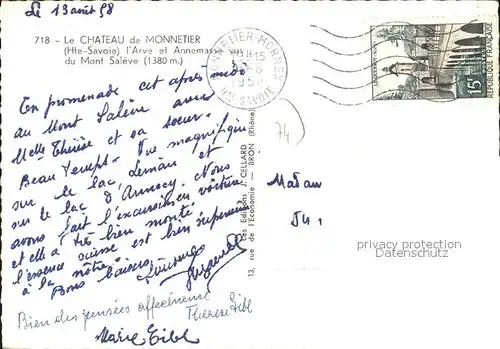 Le 13 août 58
718 - Le CHATEAU de MONNETIER
(Hte-Savoie) l'Arve et Annemasse vus
du Mont Salève (1380 m.)
MONNETIER-MORNEX
HTE SAVOIE
15F
En promenade cet après midi
au Mont Salève avec
Melle Thérèse et sa soeur.
Beau Temps. Vue magnifique
sur le lac Léman et
sur le lac d'Annecy. Nous
avons fait l'excursion en voiture
et elle a très bien monté
l'essence suisse est bien supérieure
à la nôtre.
Bons baisers
Suzanne
Bien des pensées affectueuses
Thérèse Tibl
Marie Tibl
Les Editions J. CELLARD
13, rue de l'Economie - BRON (Rhône)
74
Madam
54,
PRIVACY PROTECTION
Datenschutz